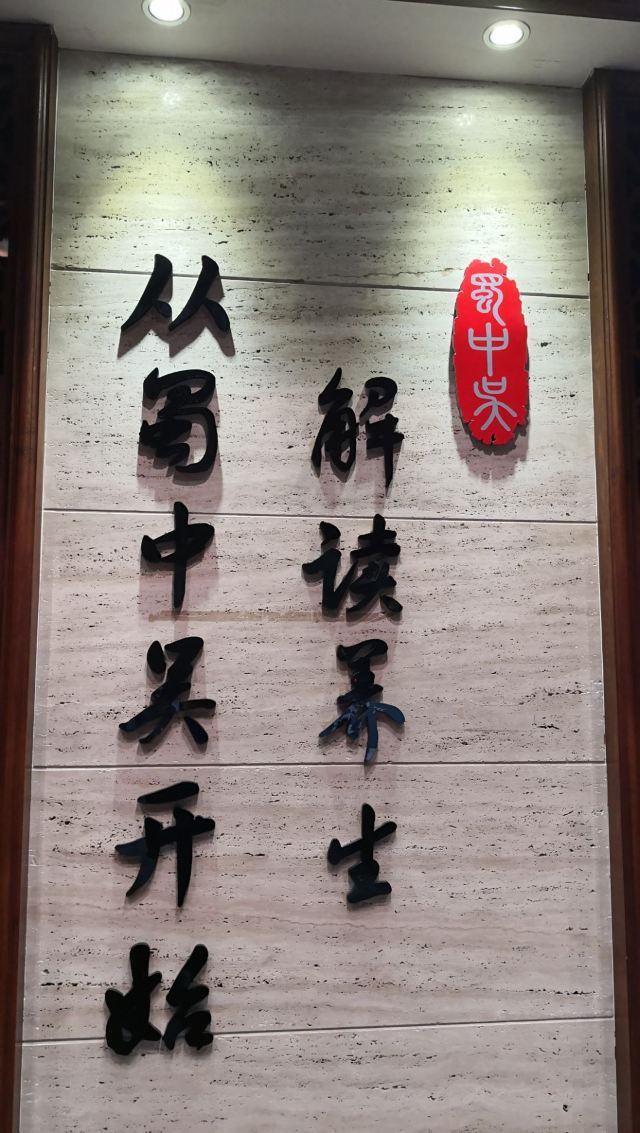 蜀中吴
解读养生
从蜀中吴开始